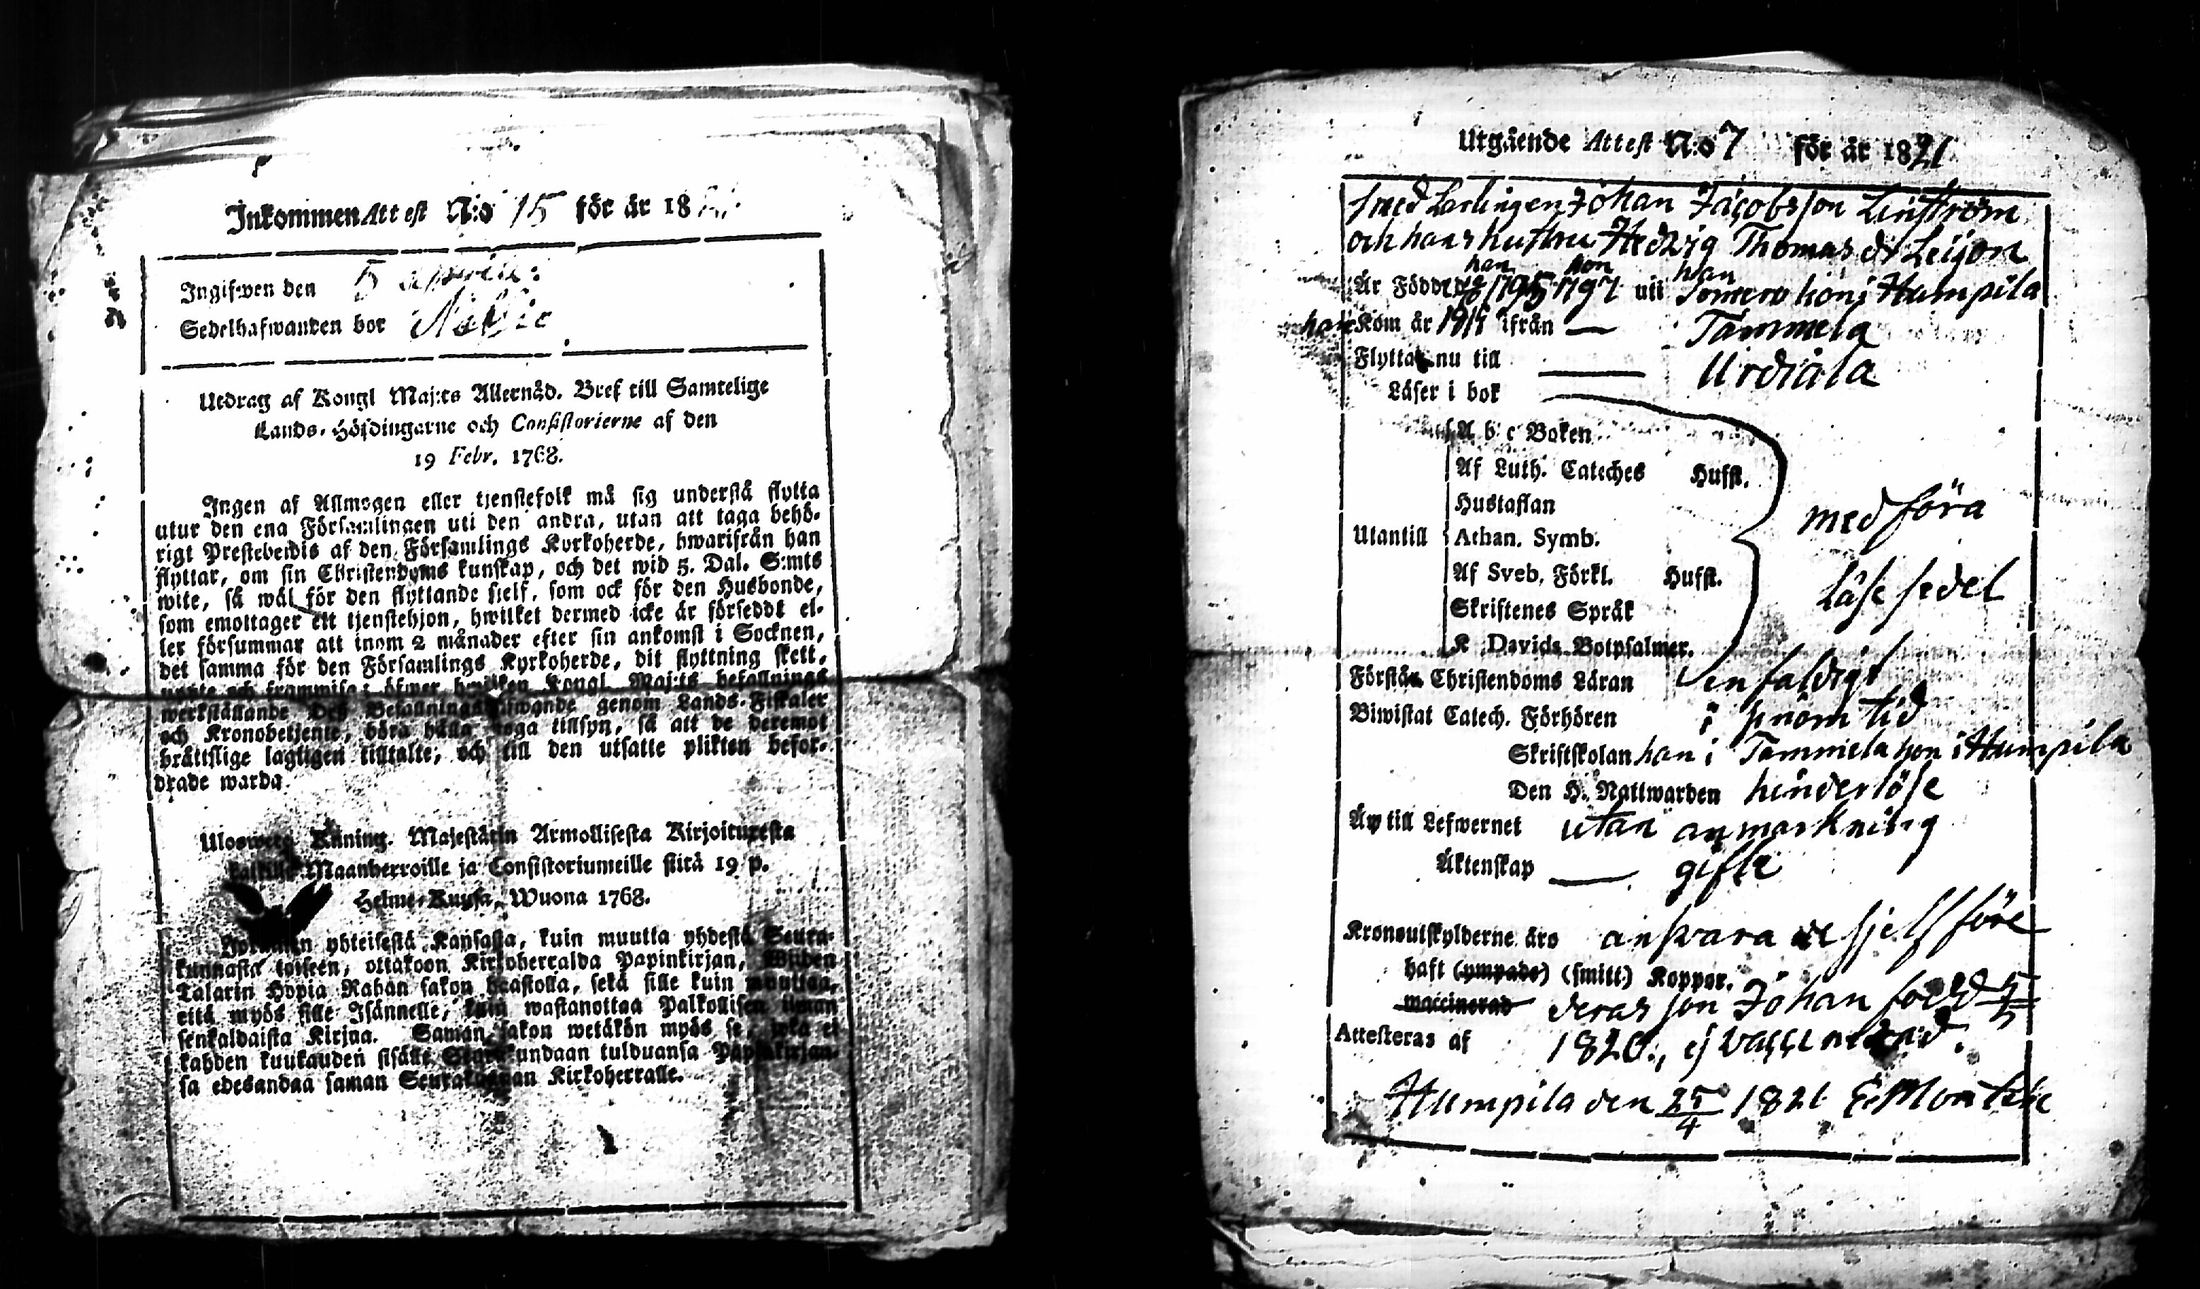 Inkommen Attest N:o 15 för år 18
Ingifwen den 5
Sedelhafwanden bor
Utdrag af Kongl Maj:ts Allernåd. Bref till Samtelige
Lands-Höfdingarne och Consistorierne af den
19 Febr. 1768.
Ingen af Allmogen eller tjenstefolk må sig understå flytta
utur den ena Församlingen uti den andra, utan att taga behö-
rigt Prestebewis af den Församlings Kyrkoherde, hwarifrån han
flyttar, om sin Christendoms kunskap, och det wid 5. Dal. S:mts
wite, så wäl för den flyttande sjelf, som ock för den Husbonde,
som emottager ett tjenstehjon, hwilket dermed icke är försedt el-
ler försummar att inom 2 månader efter sin ankomst i Socknen,
det samma för den Församlings Kyrkoherde, dit flyttning skett,
och framwisa; öfwer hwilken Kongl. Maj:ts befallnings
werkställande genom Lands-Fiskaler
och Kronobetjente, böra hålla noga tillsyn, så att de deremot
bråttslige lagligen tilltalte, och till den utsatte plikten befor-
drade warda.
Uloswето Kuning. Majestätin Armollisesta Kirjoituxesta
kaikille Maanherroille ja Consistoriumeille siitä 19 p.
Helme-Kuusa, Wuona 1768.
yhteisestä Kansasta, kuin muutta yhdestä Seura-
kunnasta toiseen, ottakoon Kirkoherralda Papinkirjan, Wijden
Talarin Hopia Rahan sakon haastolla, sekä sille kuin muuttaa,
että myös sille Isännelle, kuin wastanottaa Palkollisen ilman
senkaldaista Kirjaa. Saman sakon wetäkön myös se, joka ei
kahden kuukauden sisälle Seurakundaan tulduansa Papinkirjan-
sa edesandaa saman Seurakunnan Kirkoherralle.
Utgående Attest N:o 7 för år 1821
Smed Lärlingen Johan Jacobsson Linström
och hans hustru Hedvig Thomas dr Leijon
han hon han
Är Född 1795 1797 uti Somero hon i Humpila
han Kom år ifrån — Tammela
Flyttar nu till — Urdiala
Läser i bok
A b c Boken
Af Luth. Cateches Husst.
Hustaflan
Utantill Athan. Symb.
Af Sveb. Förkl. Husst.
Skriftenes Språk
K Davids Botpsalmer.
medföra
läse sedel
Förstår Christendoms Läran enfaldigt
Biwistat Catech. Förhören i sinom tid
Skriftskolan han i Tammela hon i Humpila
Den H. Nattwarden hinderlöse
Är till Lefwernet utan anmärkning
Äktenskap — gifte
Kronoutskylderne äro ansvara de sjelf före
haft (ympade) (smitt) Koppor.
waccinerad deras son Johan född
Attesteras af 1820, ej vaccinerad.
Humpila den 25/4 1821